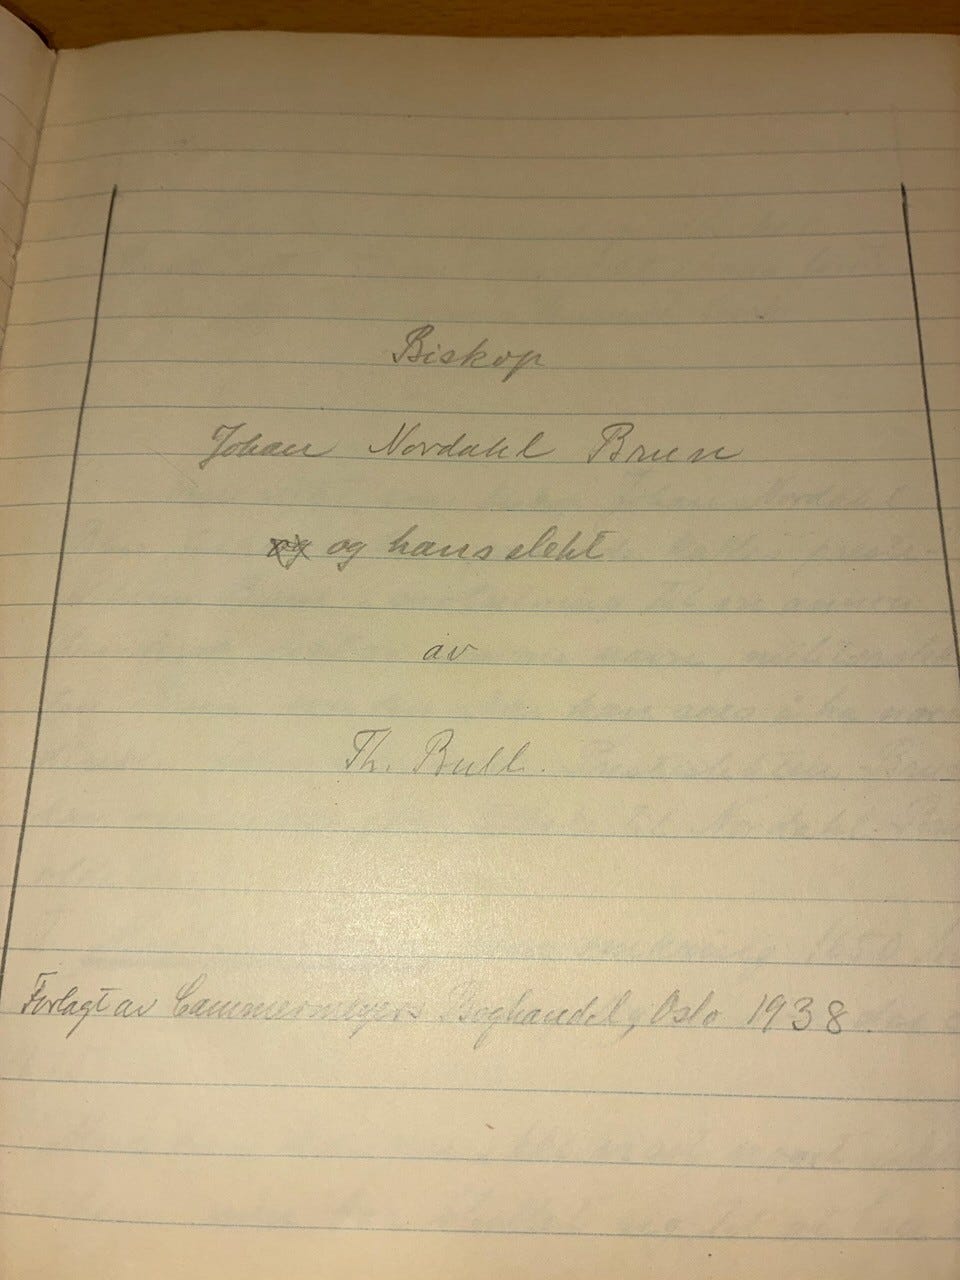 Biskop
Johan Nordahl Brun
og og hans slekt
av
Th. Bull.
Forlagt av Cammermeyers Boghandel, Oslo 1938.